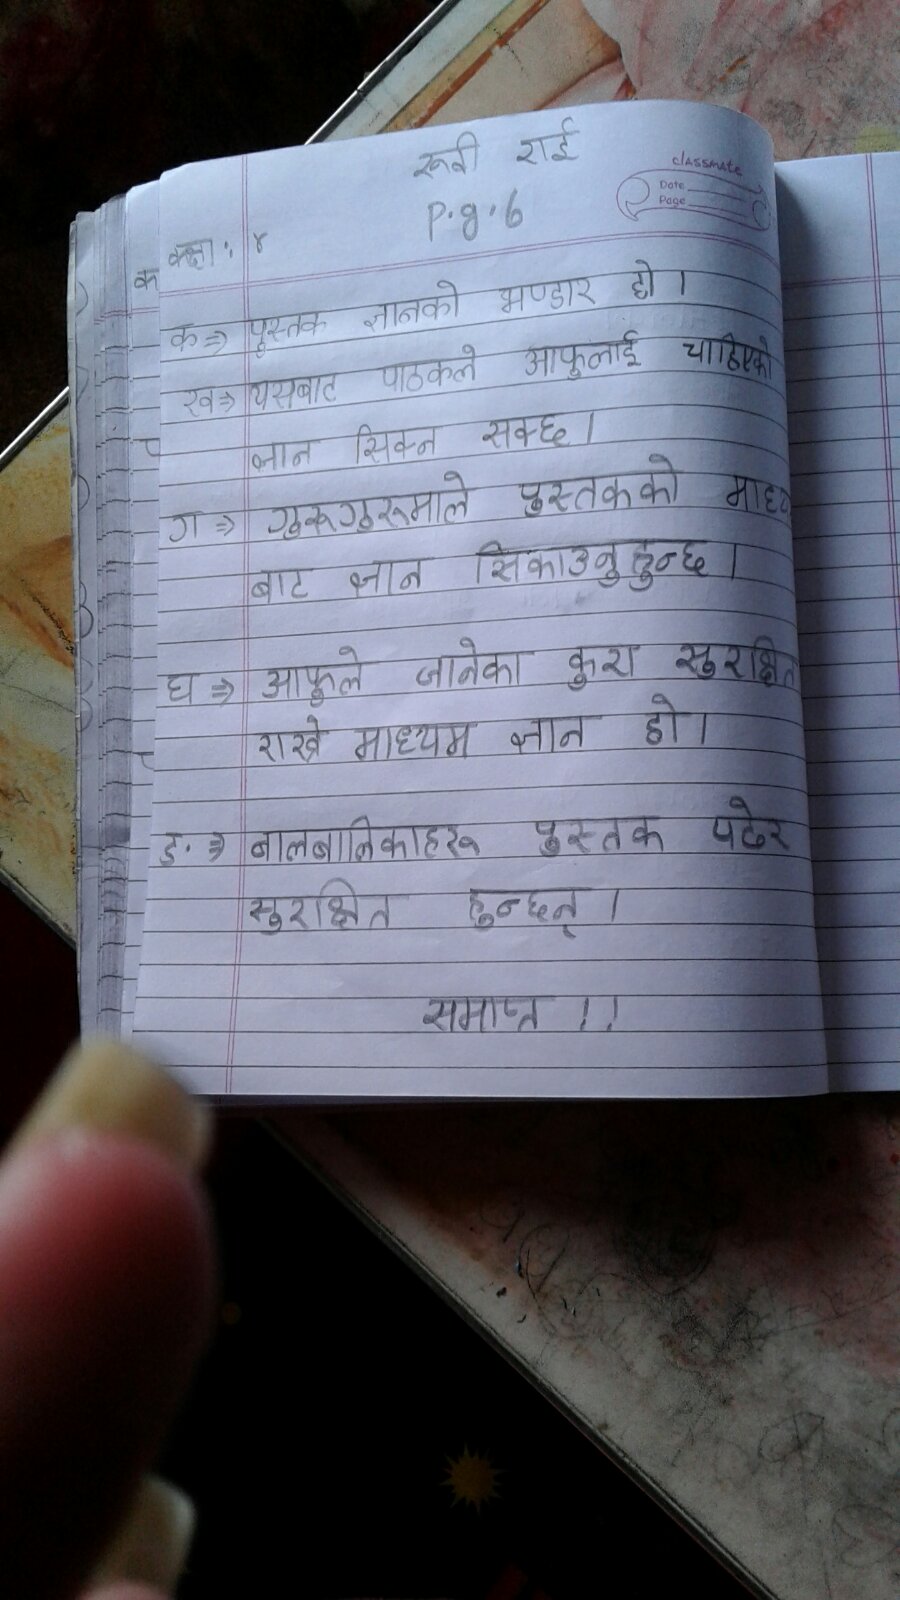 रूवी राई
classmate
Date
Page
P.g.6
कक्षा: ४
क
क ⇒ पुस्तक ज्ञानको भण्डार हो ।
ख ⇒ यसबाट पाठकले आफुलाई चाहिएको
ज्ञान सिक्न सक्छ ।
ग ⇒ गुरूगुरूमाले पुस्तकको माध्य
बाट ज्ञान सिकाउनुहुन्छ ।
घ ⇒ आफुले जानेका कुरा सुरक्षित
राख्ने माध्यम ज्ञान हो ।
ङ. ⇒ बालबालिकाहरू पुस्तक पढेर
सुरक्षित हुन्छन् ।
समाप्त ।।